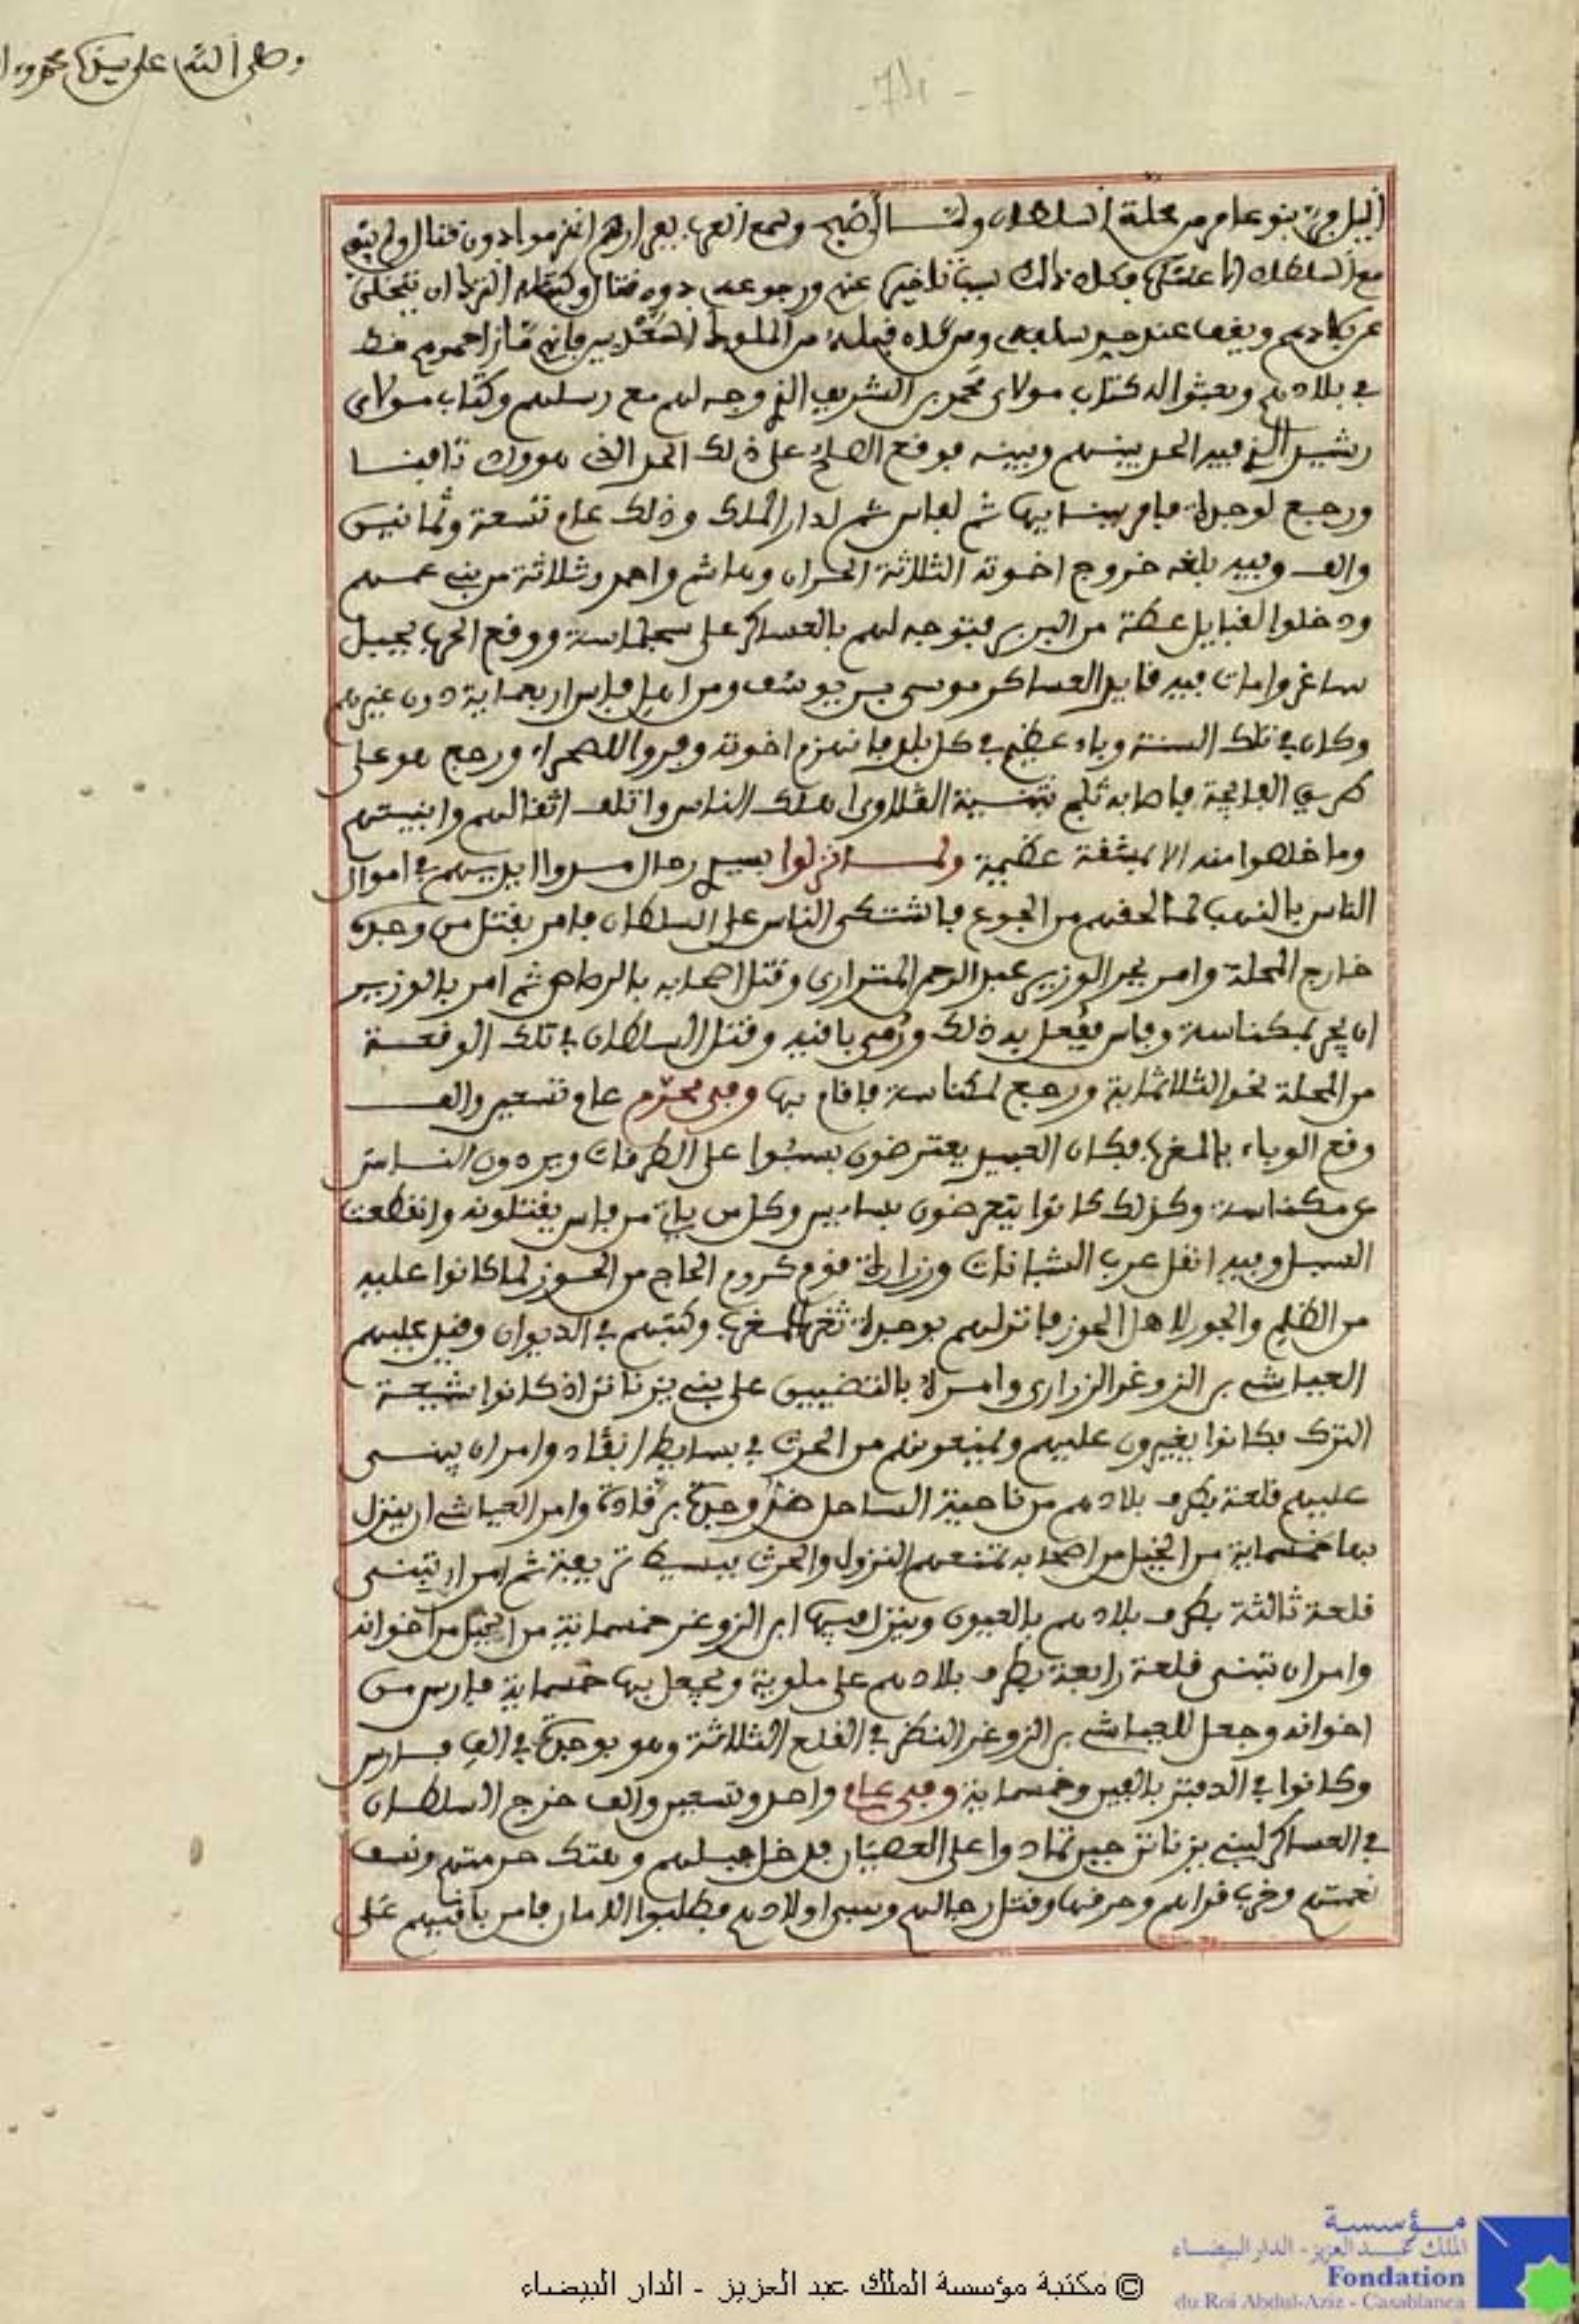 وصلى الله على سيدنا محمد و
اليل فرت بنو عامر من محلة السلطان ولما أصبح وسمع العرب بفرارهم انهزموا دون قتال ولم يبق
مع السلطان الا عسكره فكان ذالك سبب تاخيره عنهم ورجوعه بدون قتال وكتب له الترك ان يتخلى
عن بلادهم ويقف عند حد سلفه ومن كان قبله من الملوك السعديين فانهم ما زاحموهم قط
في بلادهم وبعثوا له كتاب مولاي محمد بن الشريف الذي وجه لهم مع رسلهم وكتاب مولاي
رشيد الذي فيه الحد بينهم وبينه فوقع الصلح على ذلك الحد الذي هو واد تافنا
ورجع لوجدة فامر ببنايها ثم لفاس ثم لدار الملك وذلك عام تسعة وثمانين
والف وفيه بلغه خروج اخوته الثلاثة الحران وهاشم واحمد وثلاثة من بني عمهم
ودخلوا لقبايل عطة من البربر فتوجه لهم بالعساكر على سجلماسة ووقع الحرب بجبل
ساغرو امات فيه قايد العساكر موسى بن يوسف ومن اهل فاس اربعماية دون غيرهم
وكان في تلك السنة وباء عظيم في كل بلد فانهزم اخوته وفروا للصحراء ورجع هو على
طريق الفايجة فاصابه ثلج بثنية الڭلاوى اهلك الناس واتلف اثقالهم وابنيتهم
وما خلصوا منه الا بمشقة عظيمة ولما نزلوا بسيدي رحال مدوا ايديهم في اموال
الناس بالنهب لما لحقهم من الجوع فاشتكى الناس على السلطان فامر بقتل من وجد
خارج المحلة وامر بجر الوزير عبد الرحمن المنزاري وقتل اصحابه بالرصاص ثم امر بالوزير
ان يجر بمكناسة وفاس ففعل به ذلك ورمي بافيه وقتل السلطان في تلك الوقعة
من المحلة نحو الثلاثماية ورجع لمكناسة فاقام بها وفي محرم عام تسعين والف
وقع الوباء بالمغرب فكان العبيد يعترضون بسبوا على الطرقات ويردون الناس
عن مكناسة وكذلك كانوا يتعرضون بسايس وكل من يات من فاس يقتلونه وانقطعت
السبل وفيه انقل عرب الشبانات وزرارة قوم كروم الحاج من الحوز لما كانوا عليه
من الظلم والجور لاهل الحوز فانزلهم بوجدة ثغر المغرب وكتبهم في الديوان وقيل عليهم
العياشي بن الزويغر الزراري وامره بالتضييق على بني يزناتن اذ كانوا شيعة
الترك فكانوا يغيرون عليهم ويمنعونهم من الحرث في بسايط انڭاد وامر ان يبنى
عليهم قلعة بطرف بلادهم من ناحية الساحل ضد وجدة برڭادة وامر العياشي ان ينزل
بها خمسماية من الخيل من اصحابه تمنعهم النزول والحرث ببسيط تريفة ثم امر ان تبنى
قلعة ثالثة بطرف بلادهم بالعيون وينزل فيها ابن الزويغر خمسماية من الخيل من اخوانه
وامر ان تبنى قلعة رابعة بطرف بلادهم على ملوية ويجعل بها خمسماية فارس من
اخوانه وجعل للعياشي بن الزويغر النظر في القلع الثلاثة وهو بوجدة في الف فارس
وكانوا في الدفتر بالفين وخمسماية وفي عام واحد وتسعين والف خرج السلطان
في العساكر لبني يزناتن حين تمادوا على العصيان فدخل جبلهم وهتك حرمتهم ونسف
نعمتهم وخرب قراهم وحرقها وقتل رجالهم وسبى اولادهم فطلبوا الامان فامر باقيهم على
مؤسسة
الملك عبد العزيز - الدار البيضاء
Fondation
du Roi Abdul-Aziz - Casablanca
© مكتبة مؤسسة الملك عبد العزيز - الدار البيضاء